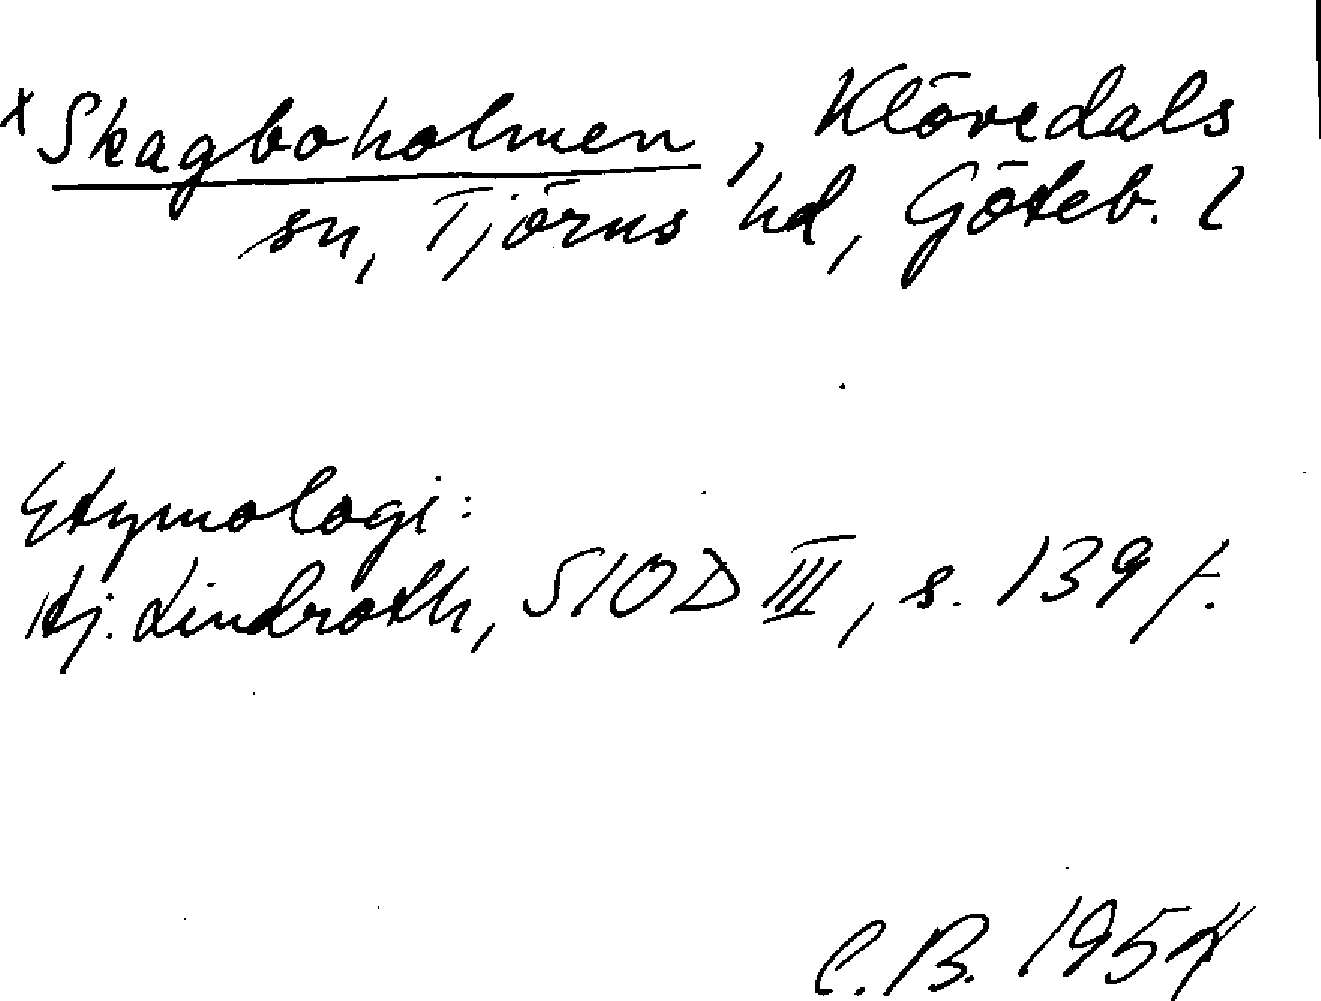 x Skagboholmen, Klövedals
sn, Tjörns hd, Göteb. l
Etymologi:
Hj. Lindroth, SIOD III, s. 139 f.
C. B. 1954